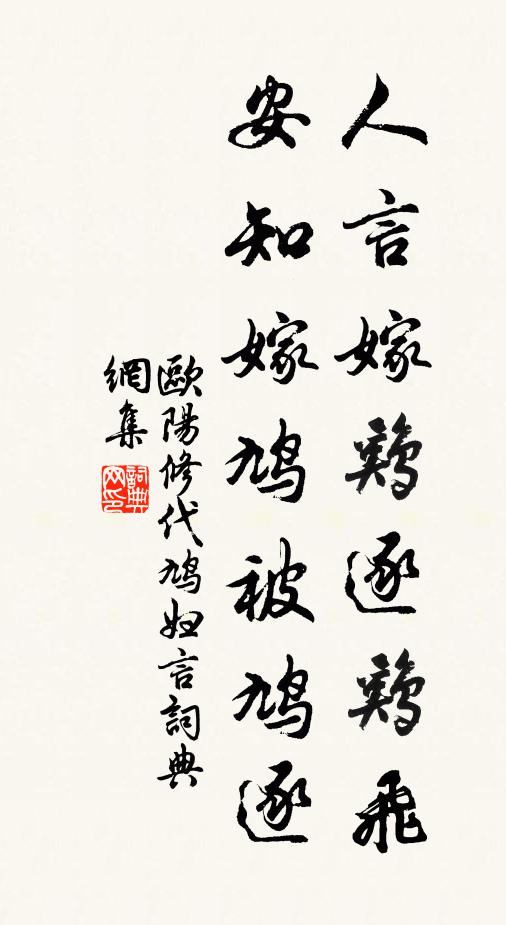 人言嫁鷄逐鷄飛
安知嫁鳩被鳩逐
歐陽修代鳩婦言詞典
網集
詞典网印